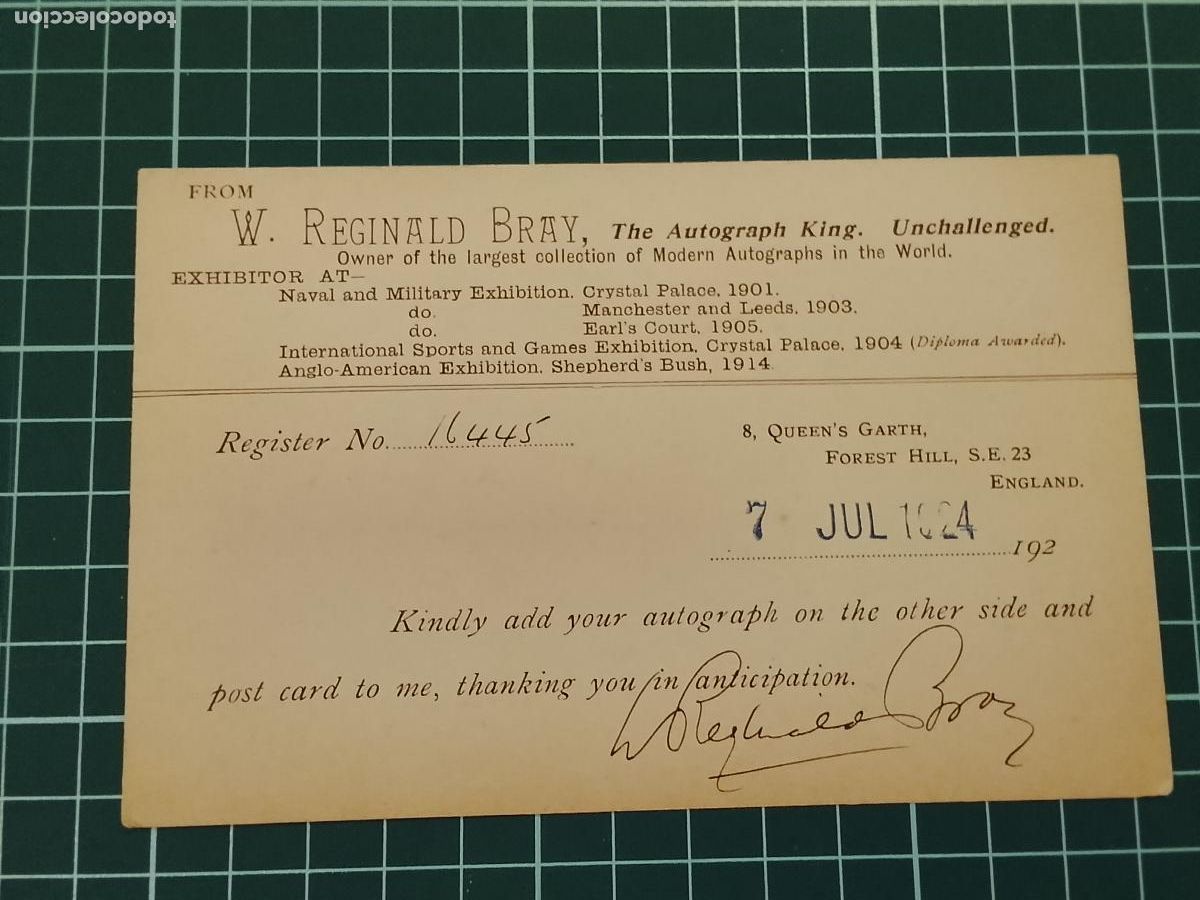 todocoleccion
FROM
W. REGINALD BRAY, The Autograph King. Unchallenged.
Owner of the largest collection of Modern Autographs in the World.
EXHIBITOR AT—
Naval and Military Exhibition, Crystal Palace, 1901.
do. Manchester and Leeds, 1903.
do. Earl's Court, 1905.
International Sports and Games Exhibition, Crystal Palace, 1904 (Diploma Awarded).
Anglo-American Exhibition, Shepherd's Bush, 1914
Register No. 16445
8, QUEEN'S GARTH,
FOREST HILL, S.E. 23
ENGLAND.
7 JUL 1924
192
Kindly add your autograph on the other side and
post card to me, thanking you in anticipation.
W Reginald Bray